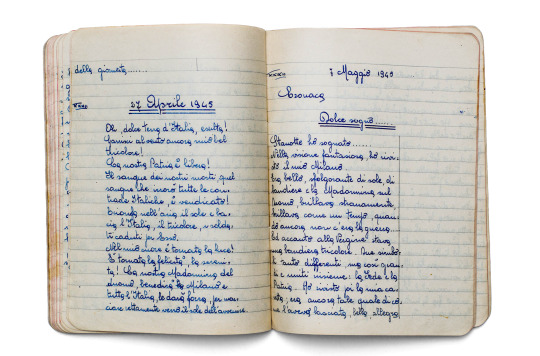 della giornata......
27 Aprile 1945
Oh, dolce terra d'Italia, esulta!
tricolore!
La nostra Patria è libera!
Il sangue dei nostri morti, quel
sangue che irrorò tutte le con-
trade Italiche, è vendicato!
Splende nell'aria il sole e ba-
cia l'Italia, il tricolore, i solda-
ti caduti per Esso.
Nel mio cuore è tornata la luce!
È tornata la felicità, la sereni-
tà! La nostra Madonnina del
duomo, benedirà la Milano e
tutta l'Italia, le darà forza, per mar-
ciare rettamente verso il sole dell'avvenire.
7 Maggio 1945
Cronaca
Dolce sogno.....
Stanotte ho sognato......
Nella visione fantasiosa, ho rivi-
sto il mio Milano.
Era bello, sfolgorante di sole, di
bandiere e la Madonnina sul
Duomo, brillava stranamente,
brillava come un tempo, quan-
do ancora non c'era la guerra.
Ed accanto alla Vergine stava
una bandiera tricolore. Due simbo-
li tanto differenti, ma così gran-
di e uniti insieme: la Fede e la
Patria. Ho rivisto poi la mia ca-
setta; era ancora tale quale di co-
me l'avevo lasciata, bella, allegra,